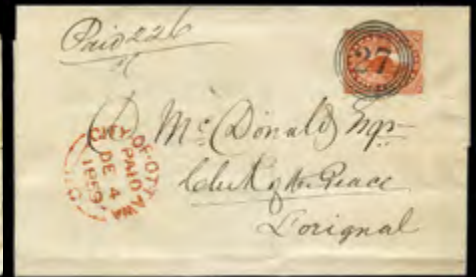 Paid 226
27
D McDonald Esqr
Clerk of the Peace
Lorignal
CITY OF OTTAWA
PAID
DE 4
1859